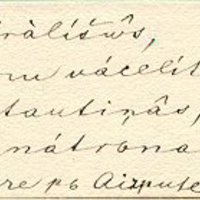 rālišws,
om vácelit
tautiņâs,
nátrona
re pō Aizpute